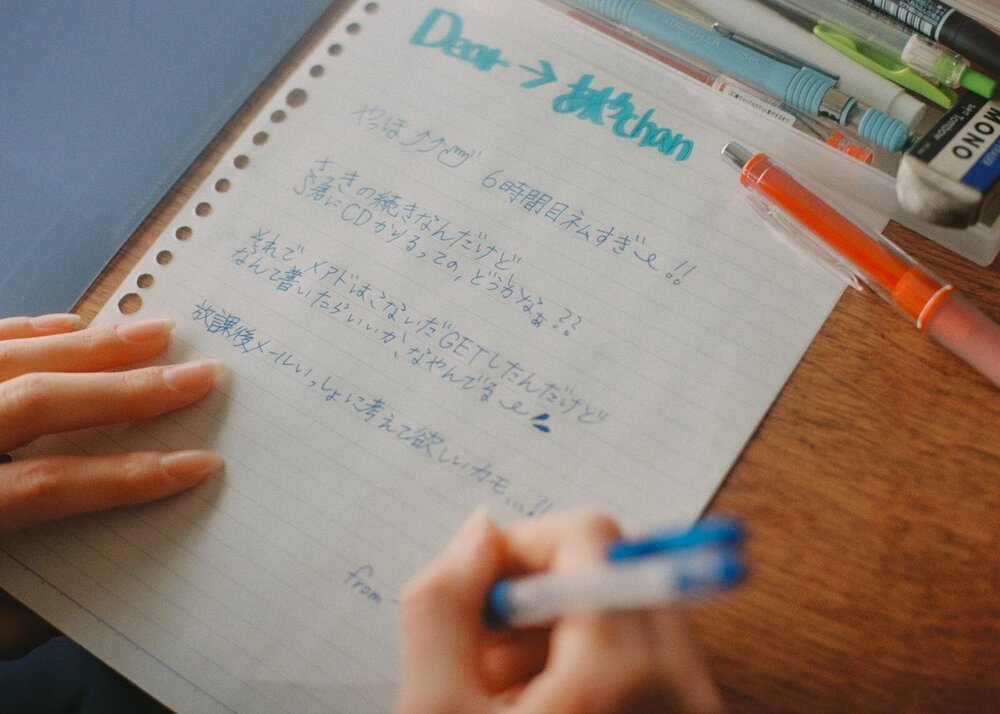 Dear → あやchan
やっほッッ
6時間目ネムすぎ!!
さっきの続きなんだけど、
S君にCDかりるっての、どうかなぁ??
それで メアドは、こないだGETしたんだけど
なんて書いたらいいか、なやんでる
放課後メールいっしょに考えて欲しいカモ...!!
from
MONO
TOMBOW